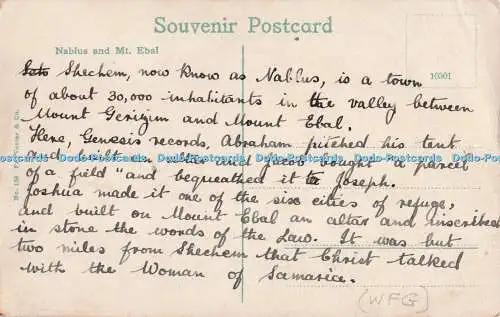 Souvenir Postcard
Nablus and Mt. Ebal
10301
Shechem, now know as Nablus, is a town
of about 30,000 inhabitants in the valley between
Mount Gerizim and Mount Ebal.
Here, Genesis records, Abraham pitched his tent
and built an altar and Jacob "bought a parcel
of a field" and bequeathed it to Joseph.
Joshua made it one of the six cities of refuge,
and built on Mount Ebal an altar and inscribed
in stone the words of the Law. It was but
two miles from Shechem that Christ talked
with the Woman of Samaria.
(WFG)
& Co.
Dodo-Postcards Dodo-Postcards Dodo-Postcards Dodo-Postcards Dodo-Postcards